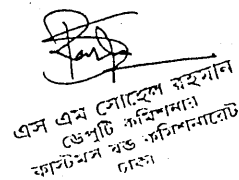 এস এম সোহেল রহমান
ডেপুটি কমিশনার
কাস্টমস বন্ড কমিশনারেট
ঢাকা